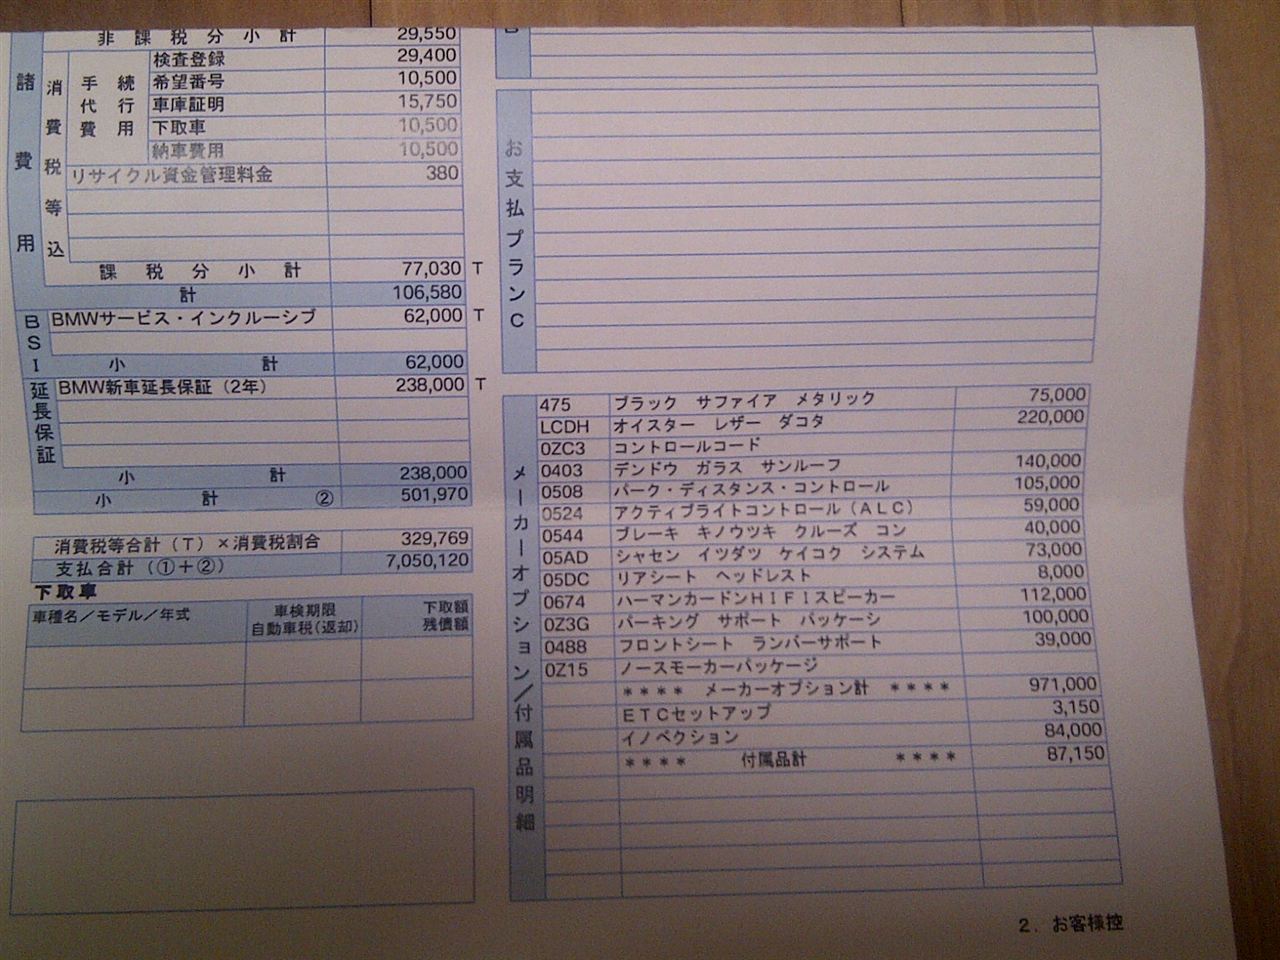 非課税分小計 29,550
諸費用
消費税等込
手続代行費用
検査登録 29,400
希望番号 10,500
車庫証明 15,750
下取車 10,500
納車費用 10,500
リサイクル資金管理料金 380
課税分小計 77,030 T
計 106,580
BSI
BMWサービス・インクルーシブ 62,000 T
小計 62,000
延長保証
BMW新車延長保証(2年) 238,000 T
小計 238,000
小計 ② 501,970
消費税等合計(T)×消費税割合 329,769
支払合計(①+②) 7,050,120
下取車
車種名/モデル/年式
車検期限
自動車税(返却)
下取額
残債額
お支払プランC
メーカーオプション/付属品明細
475 ブラック サファイア メタリック 75,000
LCDH オイスター レザー ダコタ 220,000
0ZC3 コントロールコード
0403 デンドウ ガラス サンルーフ 140,000
0508 パーク・ディスタンス・コントロール 105,000
0524 アクティブライトコントロール(ALC) 59,000
0544 ブレーキ キノウツキ クルーズ コン 40,000
05AD シャセン イツダツ ケイコク システム 73,000
05DC リアシート ヘッドレスト 8,000
0674 ハーマンカードンHIFIスピーカー 112,000
0Z3G パーキング サポート パッケーシ 100,000
0488 フロントシート ランバーサポート 39,000
0Z15 ノースモーカーパッケージ
**** メーカーオプション計 **** 971,000
ETCセットアップ 3,150
イノベクション 84,000
**** 付属品計 **** 87,150
2. お客様控